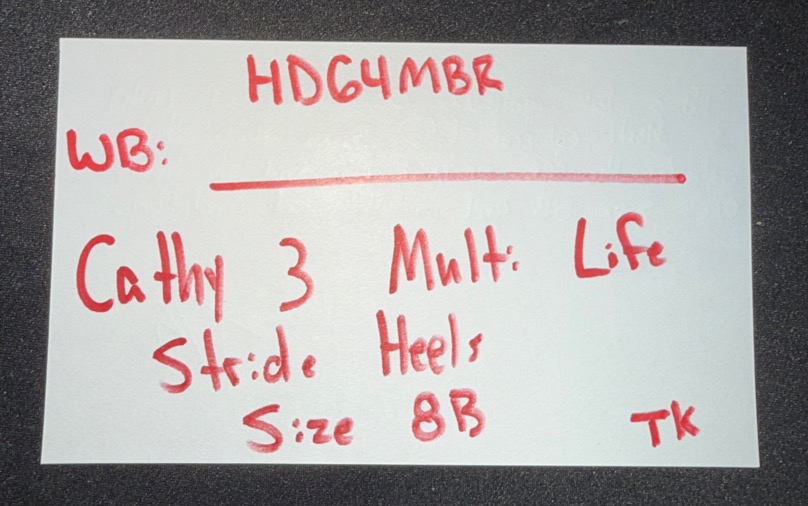 HDG4MBR
WB:
Cathy 3 Multi Life
Stride Heels
Size 8B
TK